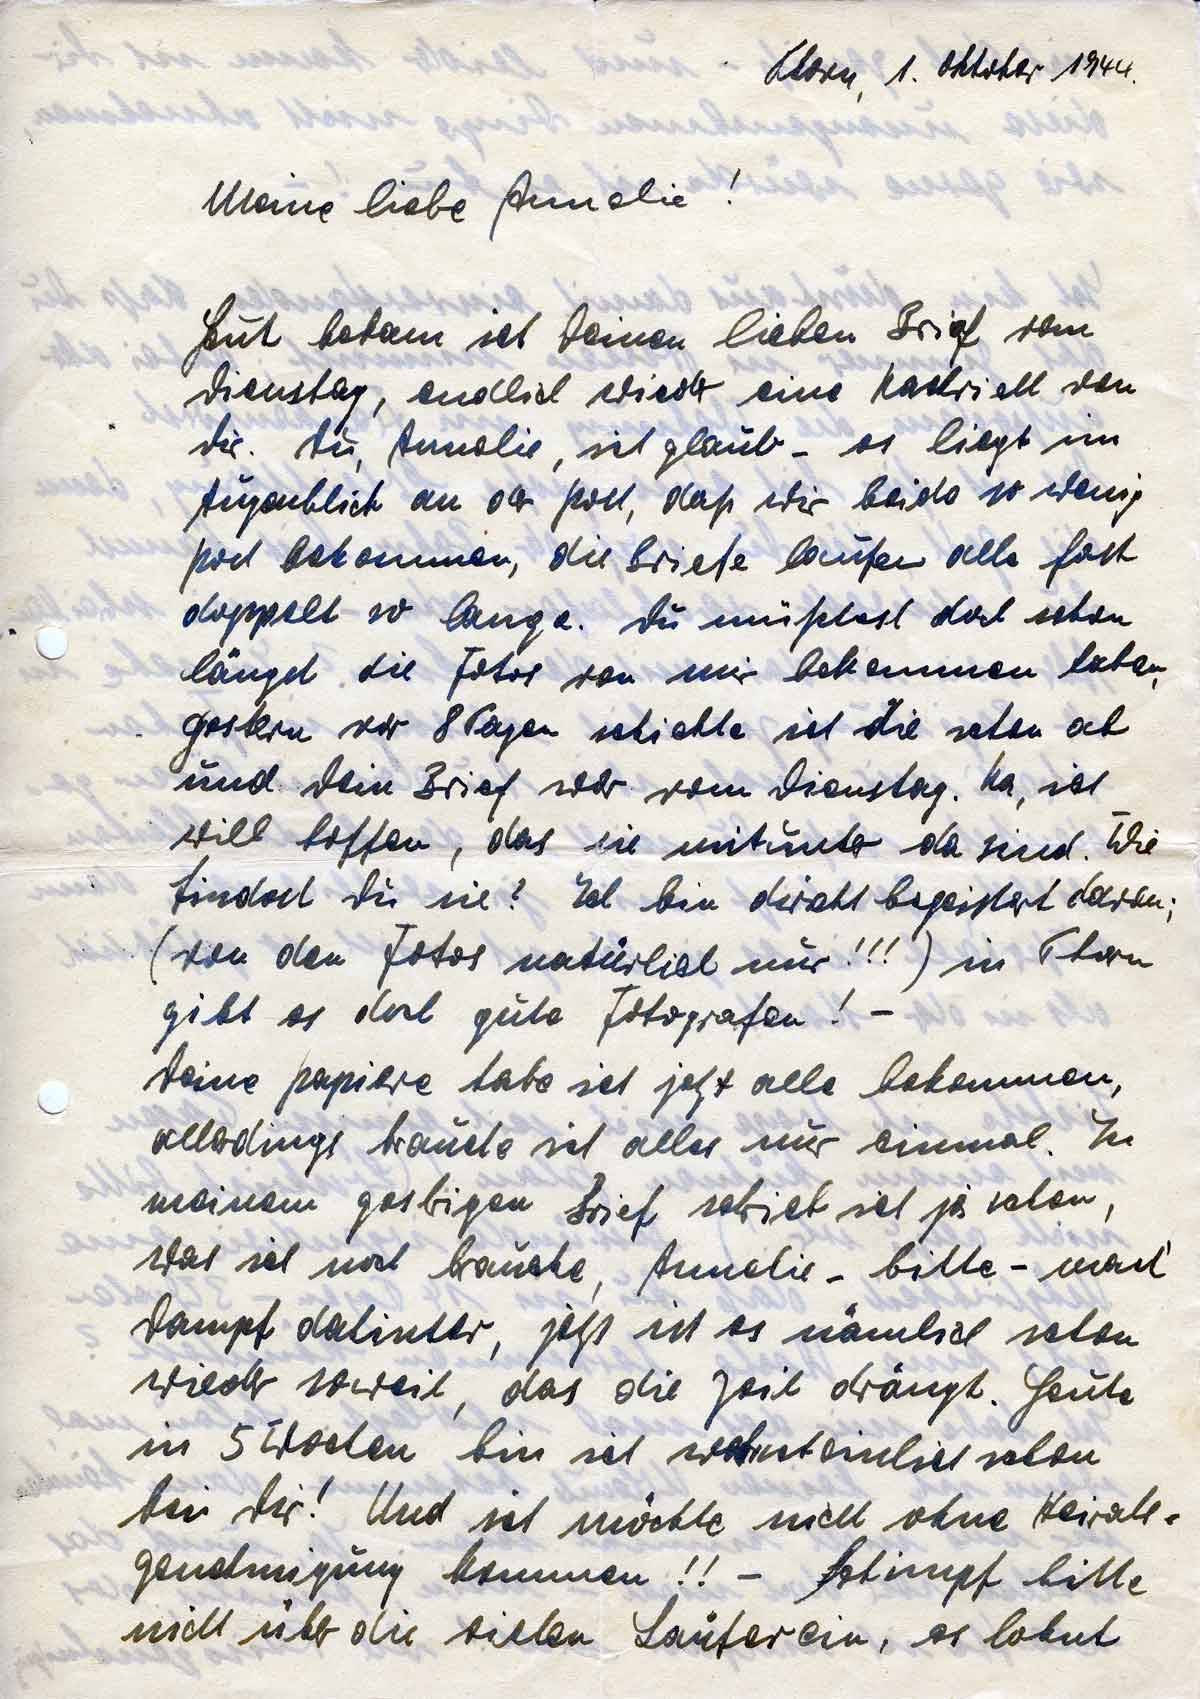 Thorn, 1. Oktober 1944.
Meine liebe Annelie!
Heut bekam ich Deinen lieben Brief vom
Dienstag, endlich wieder eine Nachricht von
Dir. Du, Annelie, ich glaub – es liegt im
Augenblick an der Post, daß wir beide so wenig
Post bekommen, die Briefe laufen alle fast
doppelt so lange. Du müßtest doch schon
längst die Fotos von mir bekommen haben,
gestern vor 8 Tagen schickte ich die schon ab
und Dein Brief war vom Dienstag. Na, ich
will hoffen, das sie mitunter da sind. Wie
findest Du sie? Ich bin direkt begeistert davon;
(von den Fotos natürlich nur!!!) in Thorn
gibt es doch gute Fotografen! –
Deine Papiere habe ich jetzt alle bekommen,
allerdings brauche ich alles nur einmal. In
meinem gestrigen Brief schrieb ich ja schon,
was ich noch brauche, Annelie – bitte – mach'
Dampf dahinter, jetzt ist es nämlich schon
wieder soweit, das die Zeit drängt. Heute
in 5 Wochen bin ich wahrscheinlich schon
bei Dir! Und ich möchte nicht ohne Heirats-
genehmigung kommen!! – Schimpf bitte
nicht über die vielen Laufereien, es lohnt